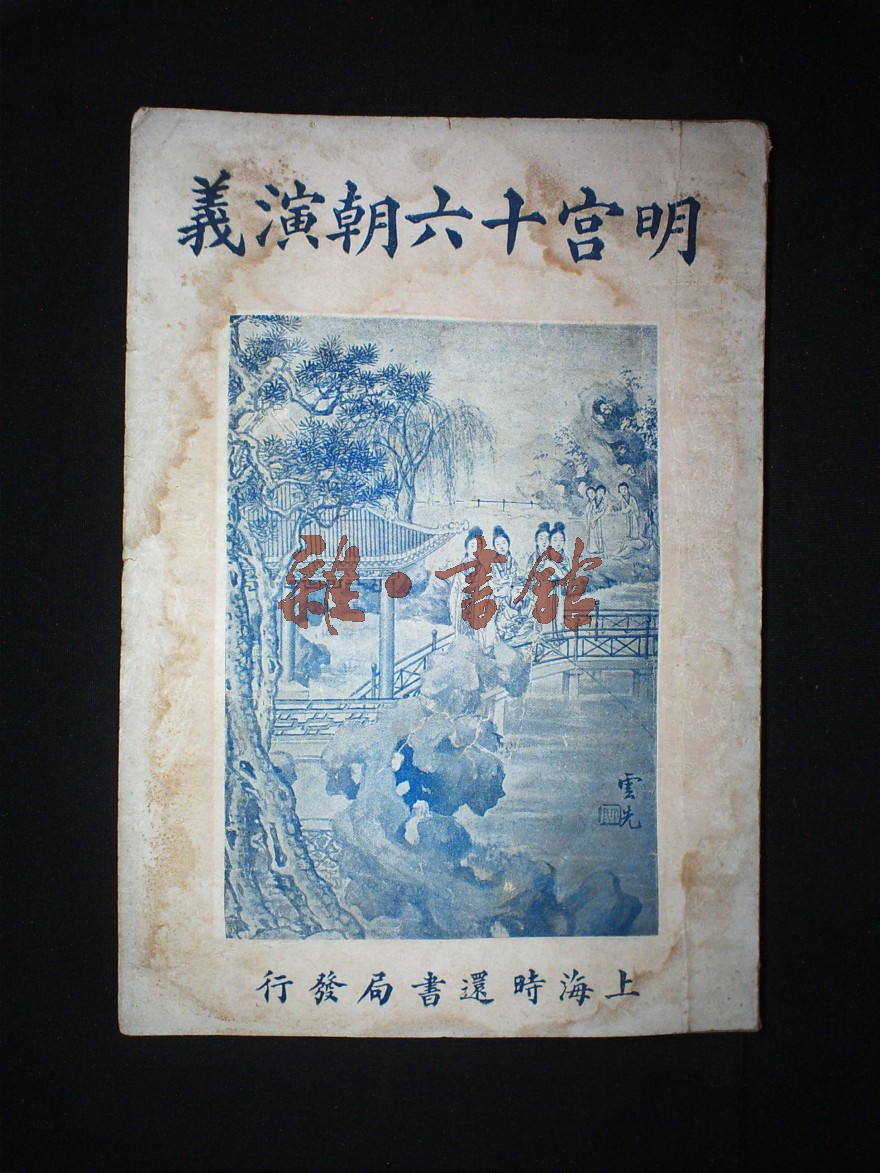 明宮十六朝演義
雜·書館
雲先
上海時還書局發行